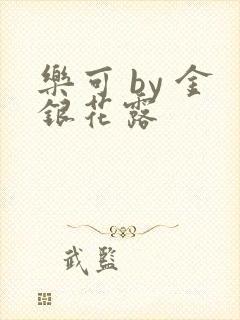 樂可 by 金
銀花露
武監